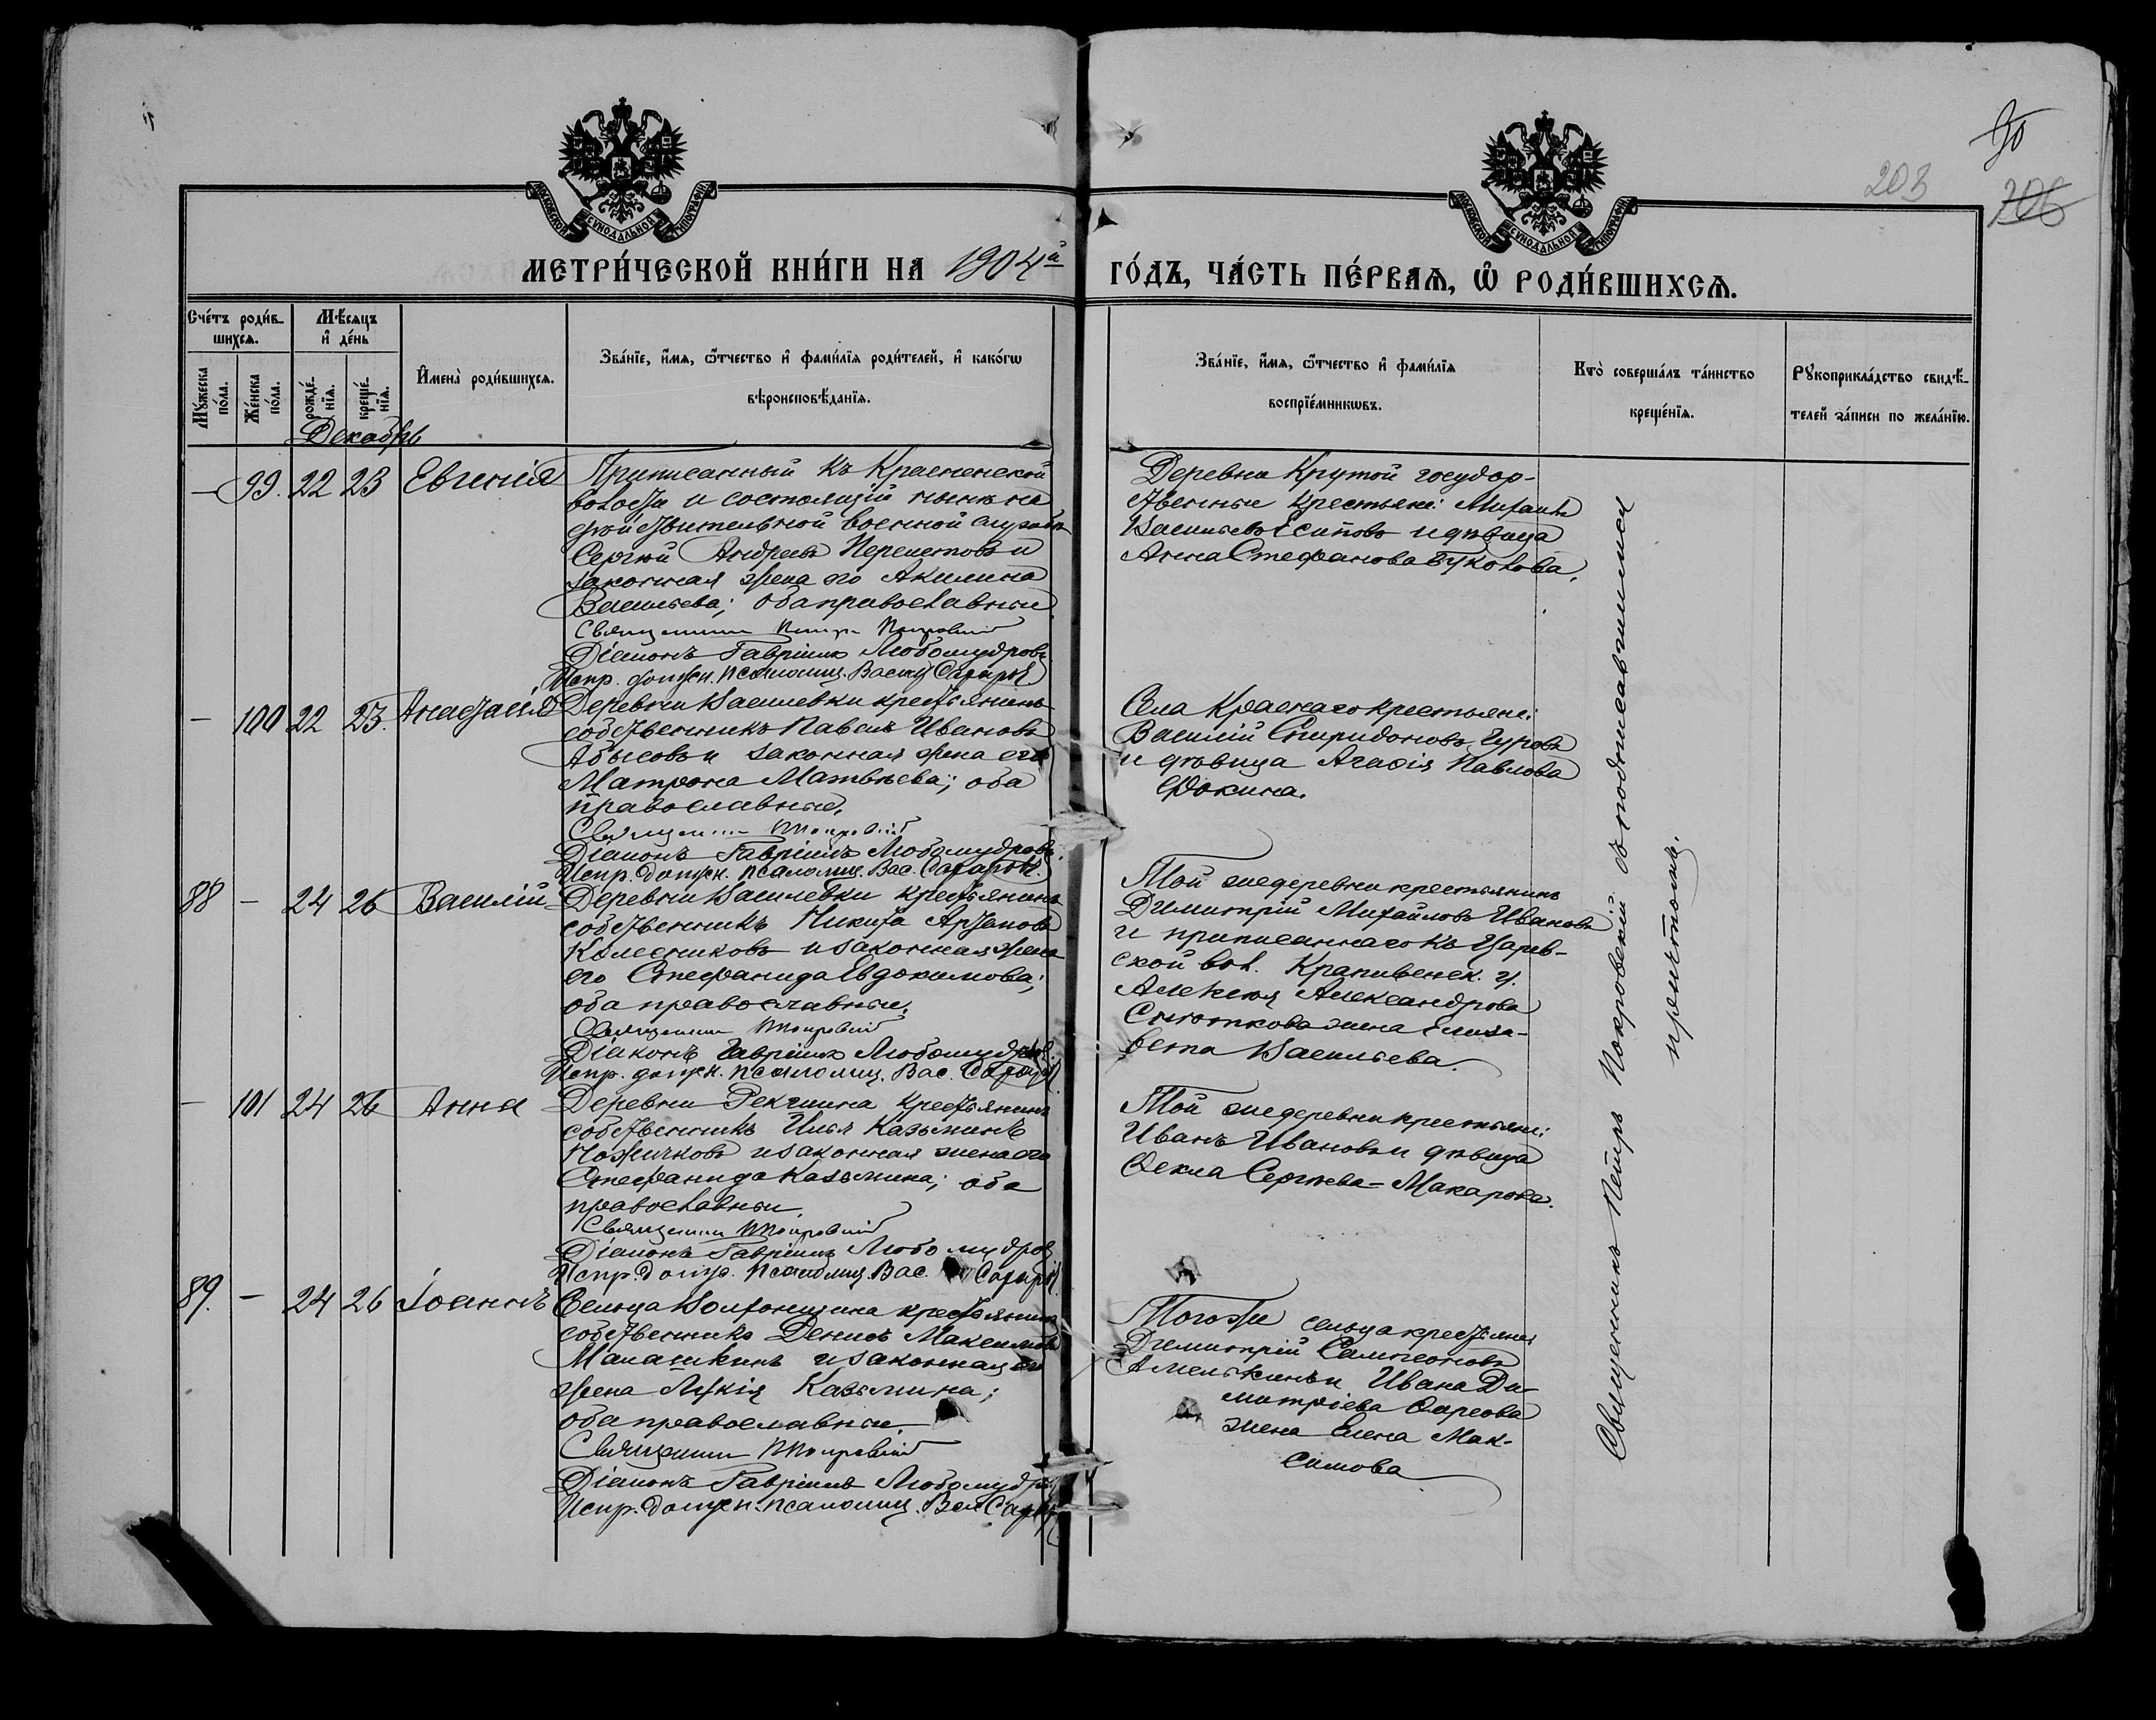 90
203
206
МОСКОВСКОЙ СѴНОДАЛЬНОЙ ТИПОГРАФІИ
МОСКОВСКОЙ СѴНОДАЛЬНОЙ ТИПОГРАФІИ
МЕТРИ́ЧЕСКОЙ КНИ́ГИ НА 1904й ГО́ДЪ, ЧА́СТЬ ПЕ́РВАѦ, Ѡ҆ РОДИ́ВШИХСѦ.
Сче́тъ роди́в-
шихсѧ.
Мꙋ́жеска по́ла.
Же́нска по́ла.
Мѣ́сѧцъ
и҆ де́нь
рожде́-
нїѧ.
креще́-
нїѧ.
И҆мена̀ роди́вшихсѧ.
Зва́нїе, и҆́мѧ, ѻ҆́тчество и҆ фами́лїѧ роди́телей, и҆ како́гѡ
вѣроисповѣ́данїѧ.
Зва́нїе, и҆́мѧ, ѻ҆́тчество и҆ фами́лїѧ
воспрїе́мникѡвъ.
Кто̀ соверша́лъ та́инство
креще́нїѧ.
Рꙋкоприкла́дство свидѣ́-
телей за́писи по жела́нїю.
Декабрь
— 99. 22 23 Евгенія
Приписанный къ Красненской
волости и состоящій нынѣ на
дѣйствительной военной службѣ
Сергѣй Андреевъ Перелетовъ и
законная жена его Акилина
Васильева; оба православные
Священникъ Петръ Покровскій
Діаконъ Гавріилъ Любомудровъ
Испр. должн. псаломщ. Васил Сахаровъ
Деревни Крутой государ-
ственные крестьяне: Михаилъ
Васильевъ Есиповъ и дѣвица
Анна Стефанова Буколова.
— 100 22 23. Анастасія
Деревни Василевки крестьянинъ
собственникъ Павелъ Ивановъ
Абысовъ и законная жена его
Матрона Матвѣева; оба
православные.
Священникъ П Покровскій
Діаконъ Гавріилъ Любомудровъ.
Испр. должн. псаломщ. Вас. Сахаровъ.
Села Краснаго крестьяне:
Василій Спиридоновъ Гуровъ
и дѣвица Агаѳія Павлова
Ѳокина.
88 — 24 26 Василій
Деревни Василевки крестьянинъ
собственникъ Никита Артамоновъ
Колесниковъ и законная жена
его Стефанида Евдокимова;
оба православные.
Священникъ П Покровскій
Діаконъ Гавріилъ Любомудровъ.
Испр. должн. псаломщ. Вас. Сахаровъ
Той же деревни крестьянинъ
Димитрій Михайловъ Ивановъ
и приписаннаго къ Царев-
ской вол. Крапивенск. у.
Алексѣя Александрова
жена Елиза-
вета Васильева.
— 101 24 26 Анна
Деревни крестьянинъ
собственникъ Илья Казьминъ
Ножичковъ и законная жена его
Стефанида Казьмина; оба
православные.
Священникъ П Покровскій
Діаконъ Гавріилъ Любомудровъ
Испр. должн. псаломщ. Вас. Сахаровъ
Той же деревни крестьяне:
Иванъ Ивановъ и дѣвица
Ѳекла Сергѣева Макарова.
89. — 24 26 Іоаннъ
Сельца крестьянинъ
собственникъ Денисъ Максимовъ
Малашкинъ и законная его
жена Лукія Казьмина;
оба православные.
Священникъ П Покровскій
Діаконъ Гавріилъ Любомудровъ
Испр. должн. псаломщ. Вас Сахаровъ
Того же сельца крестьяне
Димитрій Сампсоновъ
Амелькинъ и Ивана Ди-
митріева
жена Елена Мак-
симова
Священникъ Петръ Покровскій съ подписавшимися
причтомъ.